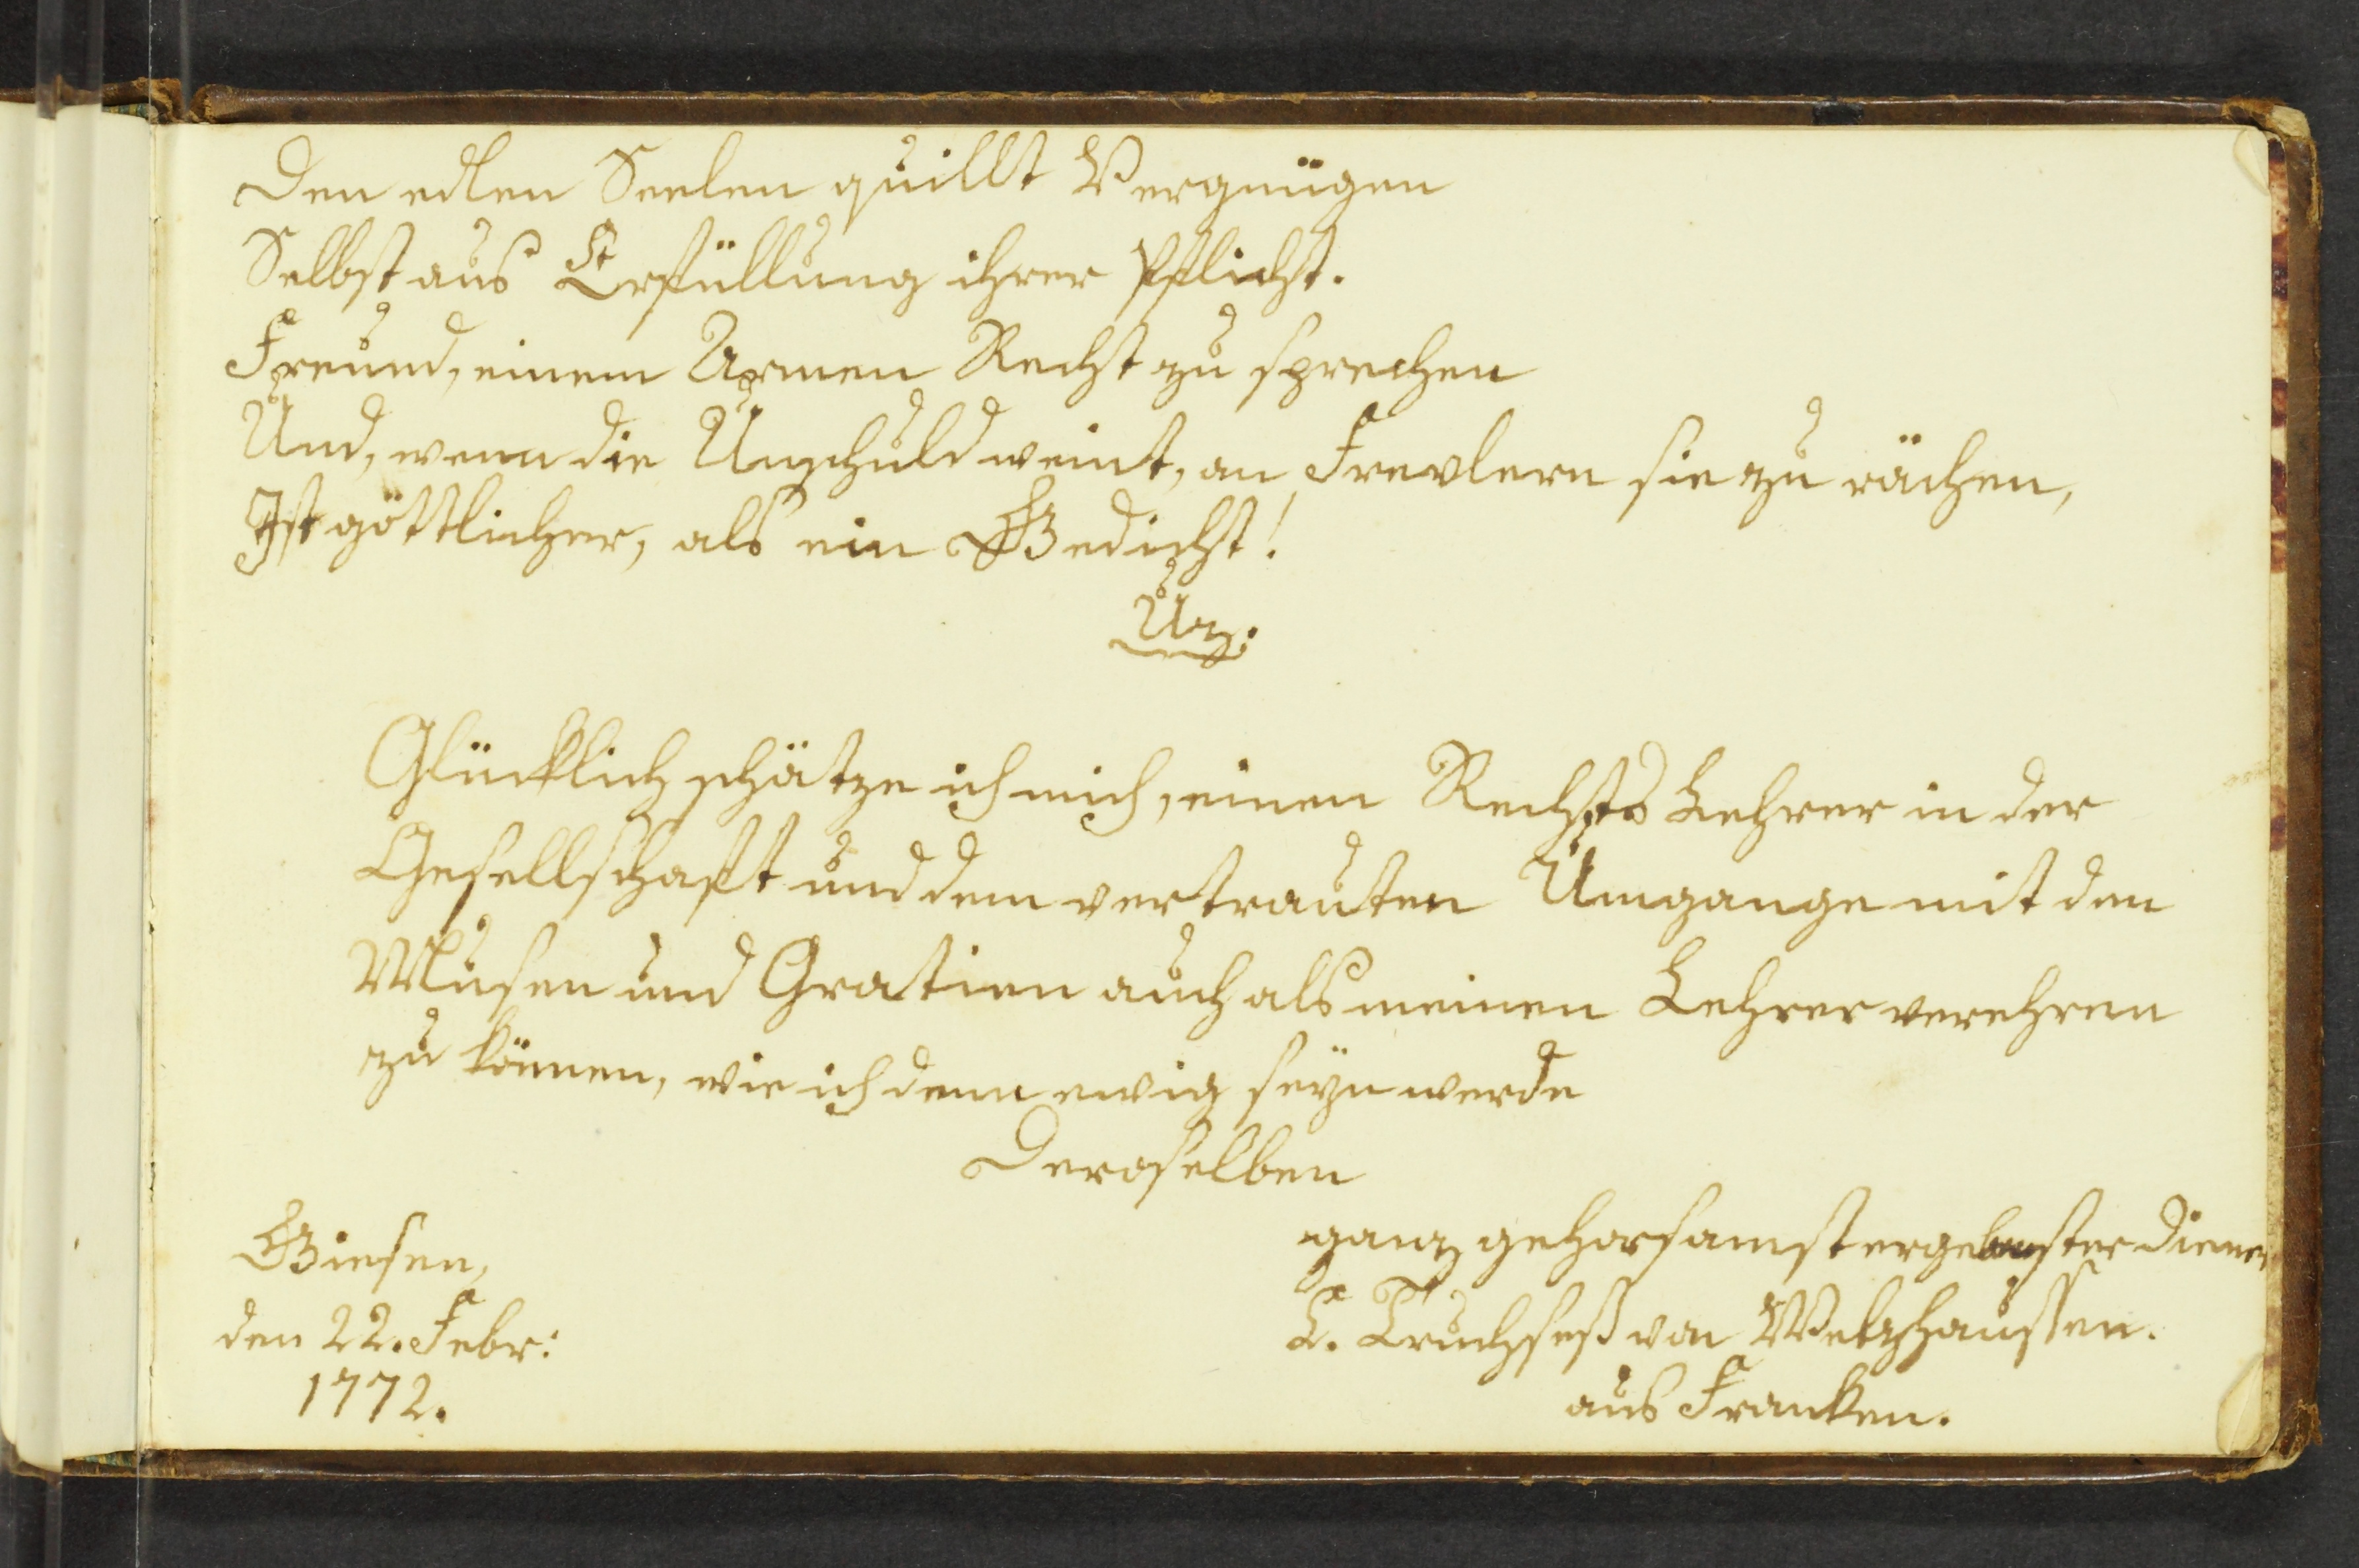 Den edlen Seelen quillt Vergnügen
Selbst aus Erfüllung ihrer Pflicht.
Freund, einem Armen Recht zu sprechen
Und, wenn die Unschuld weint, an Frevlern sie zu rächen,
Ist göttlicher, als ein Gedicht!
Uz:
Glücklich schätze ich mich, einen Rechts Lehrer in der
Gesellschaft und dem vertrauten Umgange mit den
Musen und Gratien auch als meinen Lehrer verehren
zu können, wie ich denn ewig seyn werde
Deroselben
ganz gehorsamst ergebenster Diener,
C. Truchseß von Wetzhaussen.
aus Franken.
Giesen,
den 22. Febr:
1772.